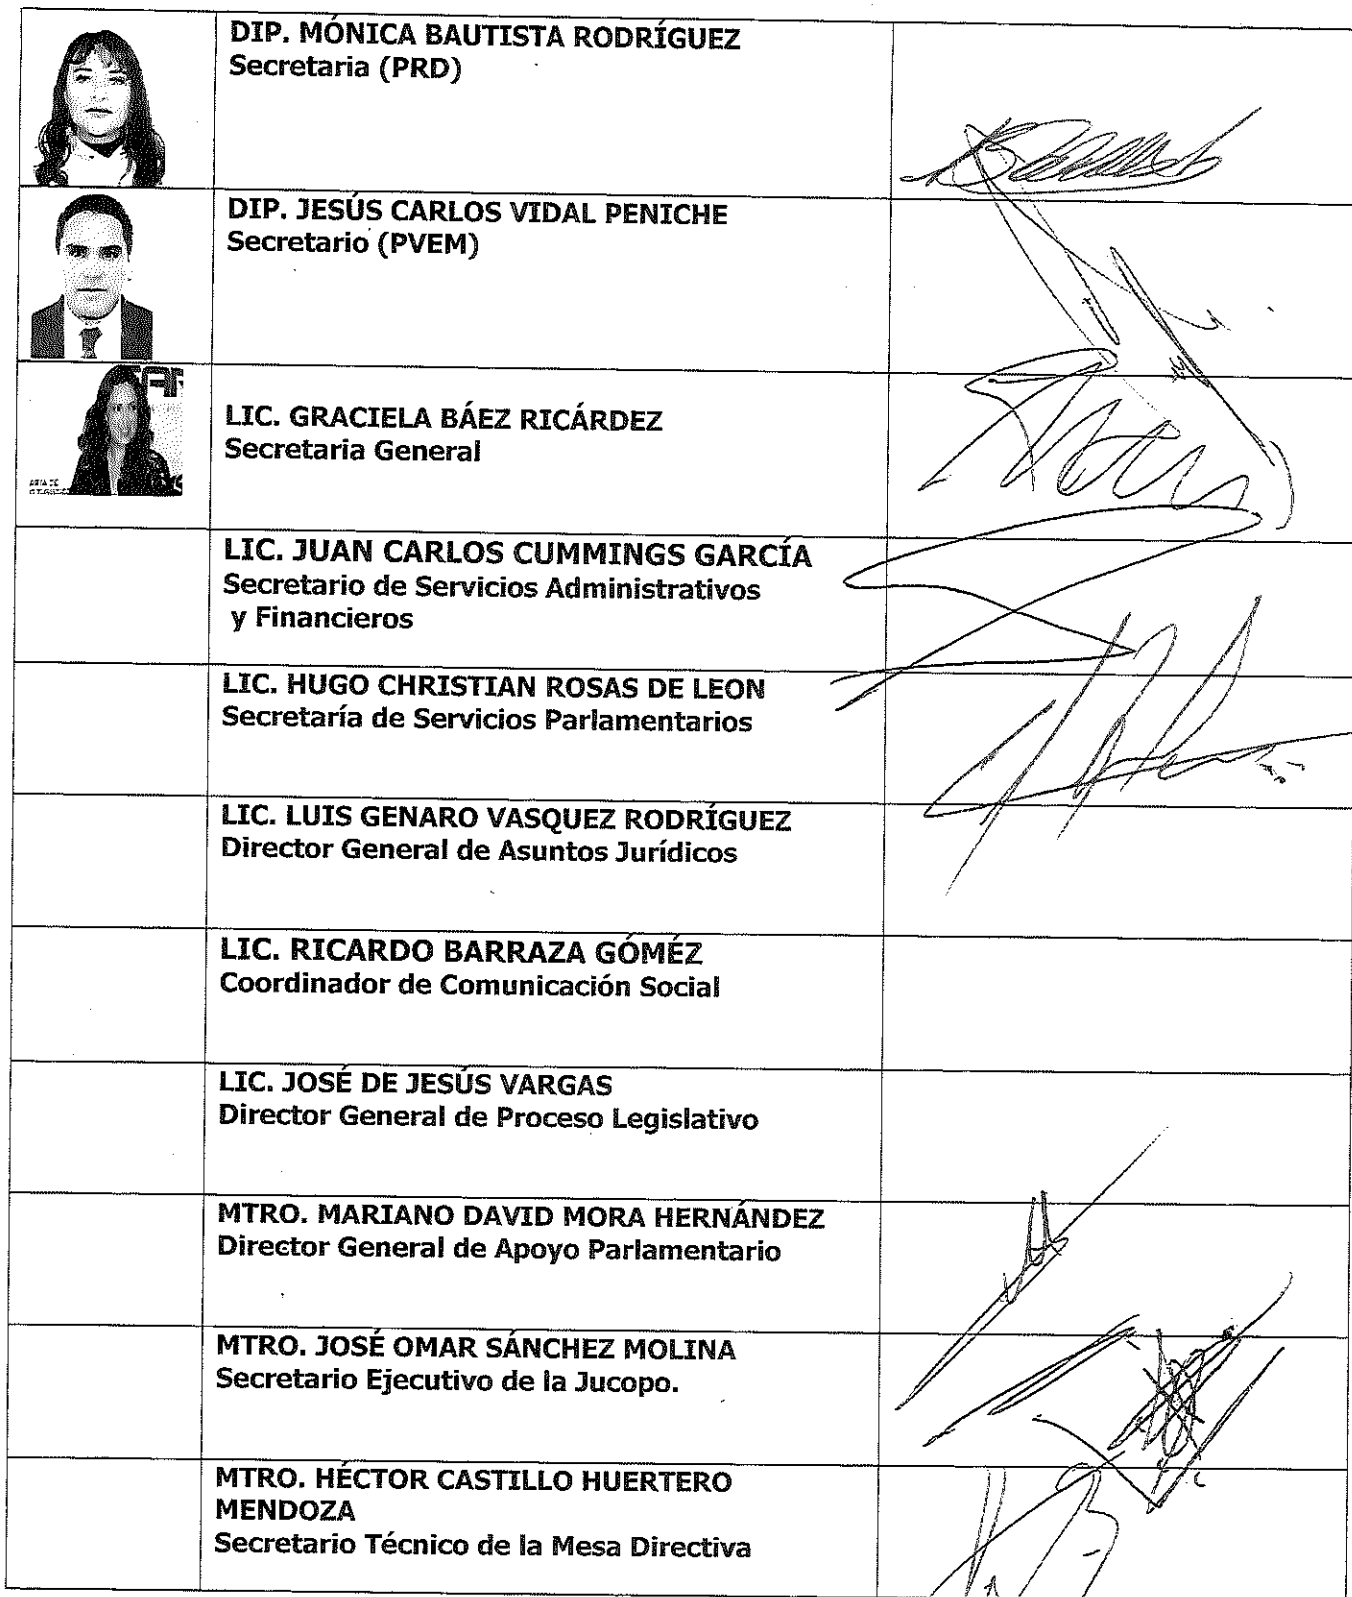 DIP. MÓNICA BAUTISTA RODRÍGUEZ
Secretaria (PRD)
DIP. JESÚS CARLOS VIDAL PENICHE
Secretario (PVEM)
LIC. GRACIELA BÁEZ RICÁRDEZ
Secretaria General
LIC. JUAN CARLOS CUMMINGS GARCÍA
Secretario de Servicios Administrativos
y Financieros
LIC. HUGO CHRISTIAN ROSAS DE LEON
Secretaría de Servicios Parlamentarios
LIC. LUIS GENARO VASQUEZ RODRÍGUEZ
Director General de Asuntos Jurídicos
LIC. RICARDO BARRAZA GÓMÉZ
Coordinador de Comunicación Social
LIC. JOSÉ DE JESÚS VARGAS
Director General de Proceso Legislativo
MTRO. MARIANO DAVID MORA HERNÁNDEZ
Director General de Apoyo Parlamentario
MTRO. JOSÉ OMAR SÁNCHEZ MOLINA
Secretario Ejecutivo de la Jucopo.
MTRO. HÉCTOR CASTILLO HUERTERO
MENDOZA
Secretario Técnico de la Mesa Directiva